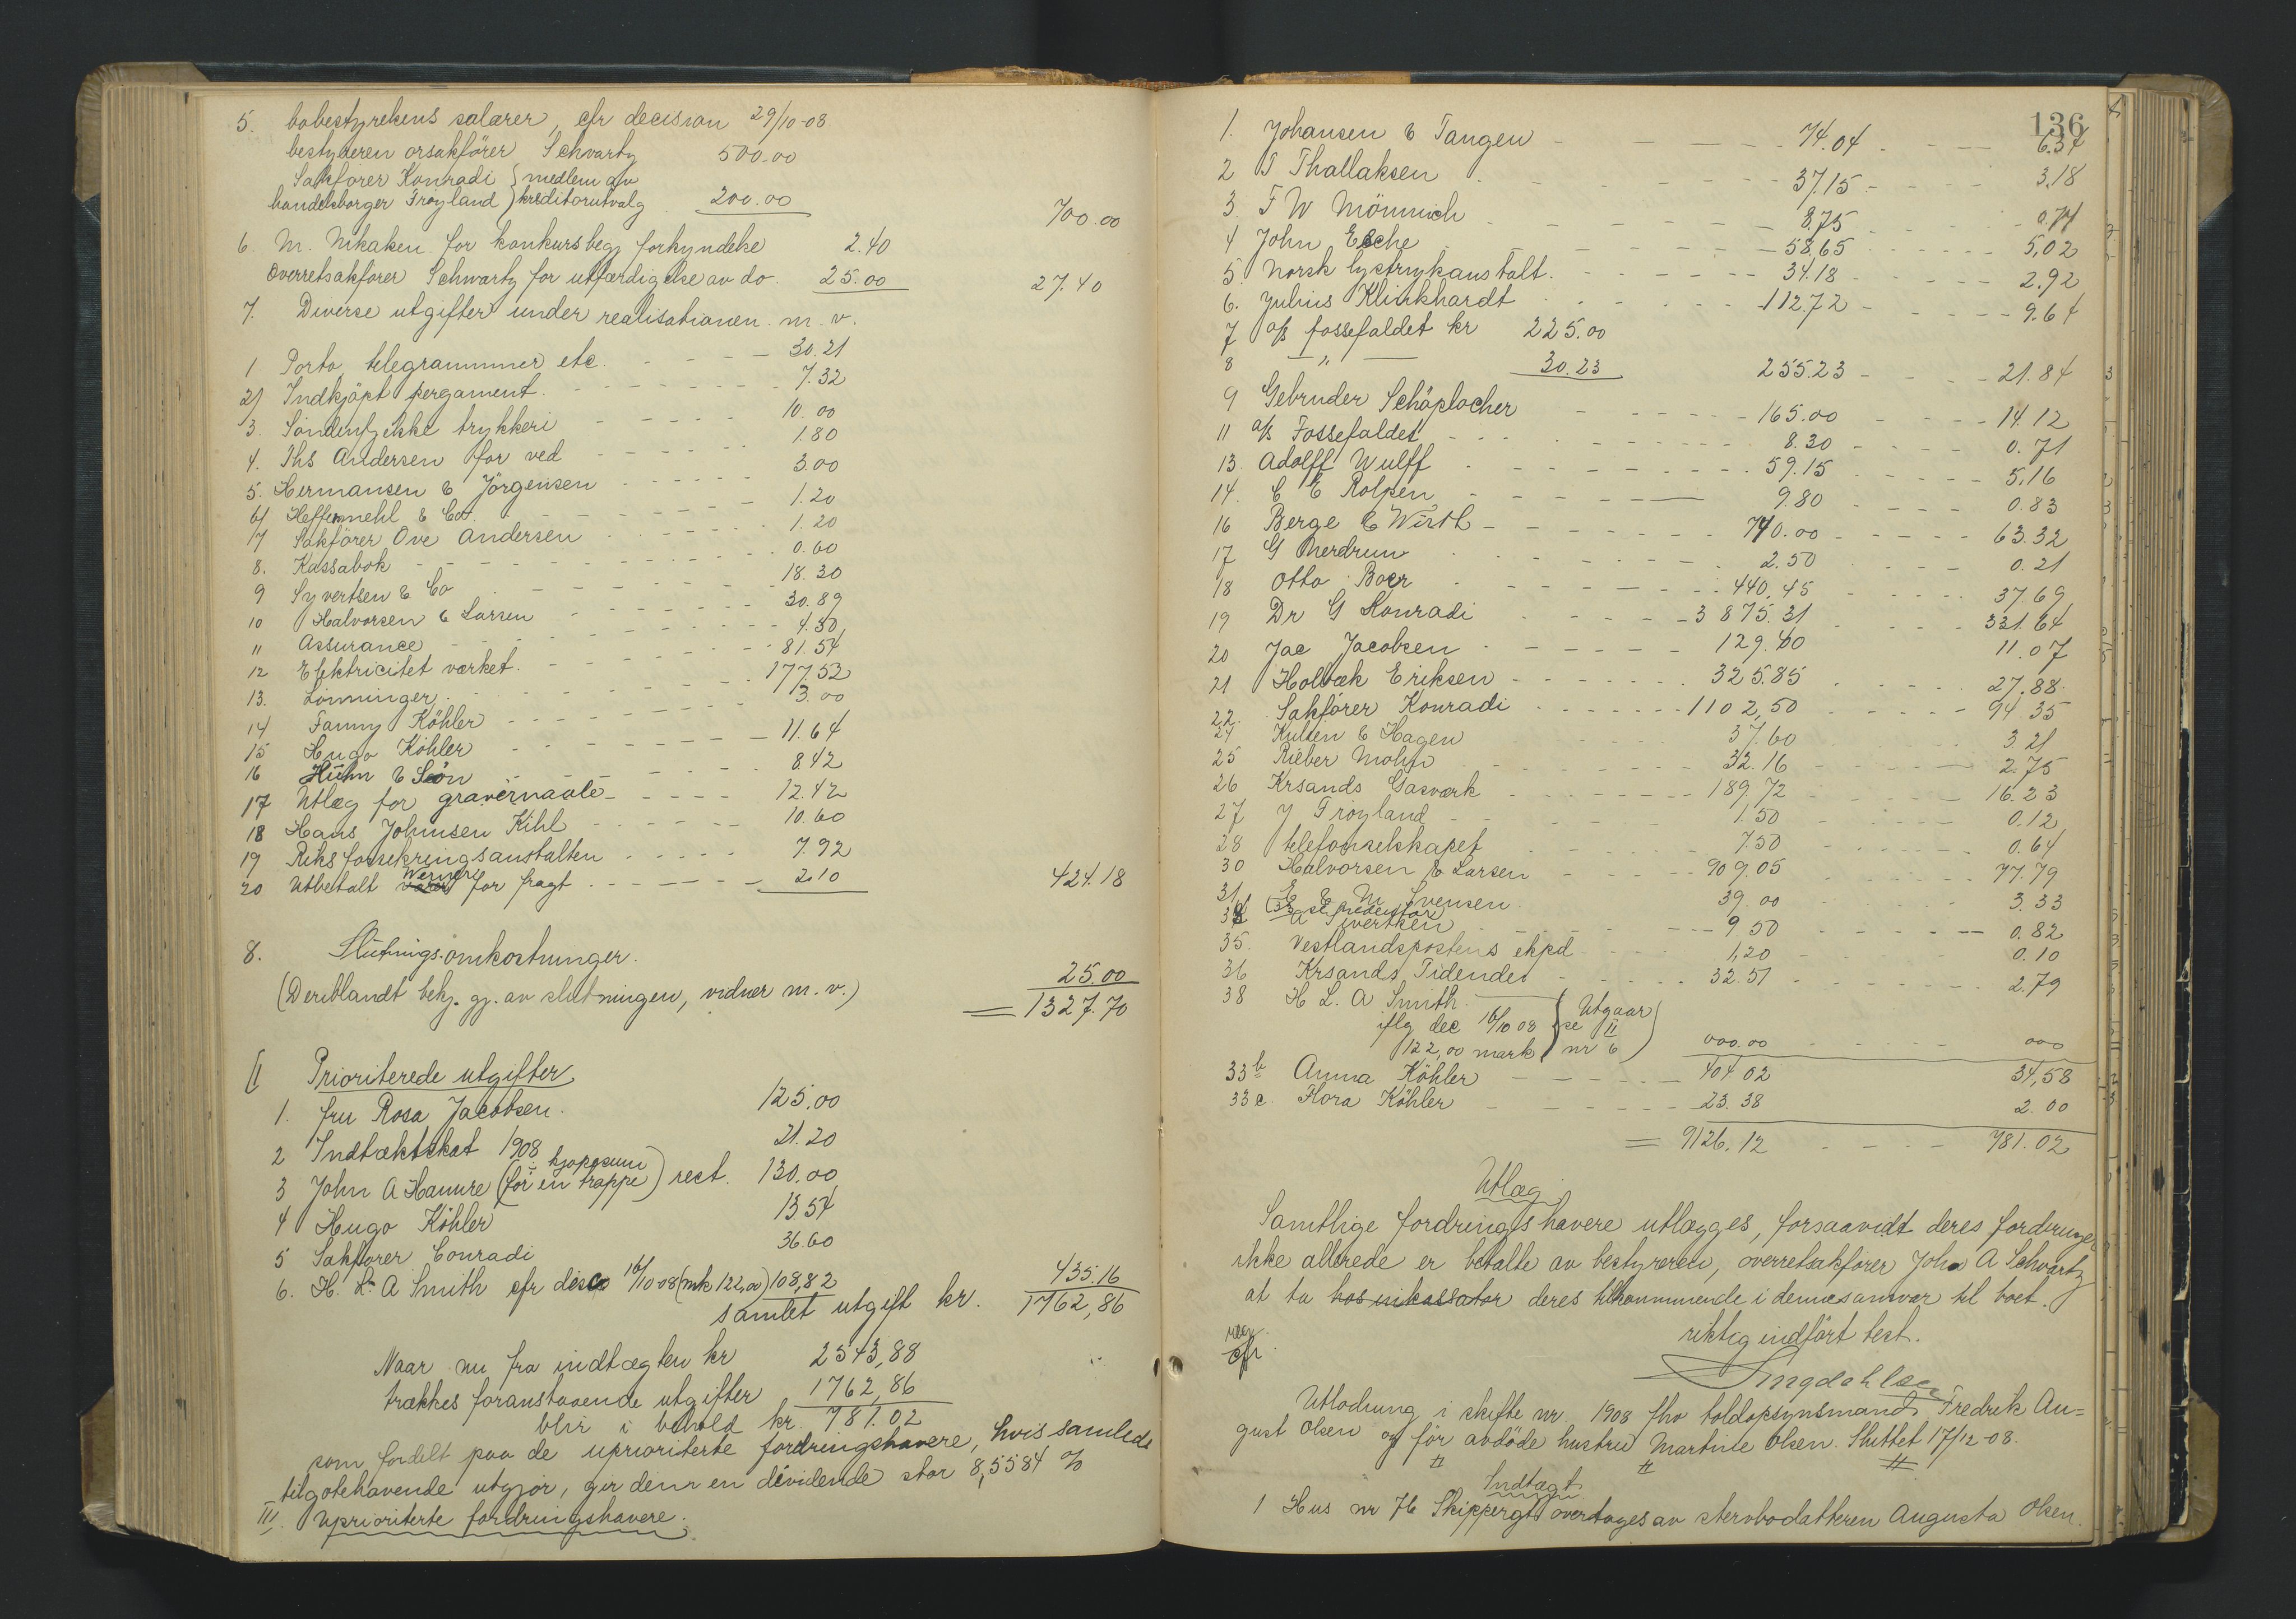 5. bobestyrekens salærer, cfr decision 29/10-08
bestyreren orsakfører Schvartz 500.00
Sakfører Konradi } medlem av
handelsborger Frøyland } kreditorutvalg 200.00 700.00
6. M. Mkaken for konkursbegj forkyndelse 2.40
Overretsakfører Schwartz for utfærdigelse av do. 25.00 27.40
7. Diverse utgifter under realisationen m. v.
1 Porto, telegrammer etc. 30.21
2) Indkjøpt pergament. 7.32
3. Söndenfjelske trykkeri 10.00
4. Ths Andersen for ved 1.80
5. Hermansen & Jörgensen 3.00
6) Heffermehl & Co. 1.20
7 Sakförer Ove Andersen 1.20
8. Kassabok 0.60
9 Syvertsen & Co 18.30
10 Halvorsen & Larsen 30.89
11 Assurance 4.30
12 Elektricitet værket. 81.54
13. Lønninger 177.52
14 Fanny Köhler 3.00
15 Hugo Köhler 11.64
16 Hühn & Sön 8.42
17 Utlæg for gravernaale 12.42
18 Hans Johnsen Kihl 10.60
19 Riksforsikringsanstalten 7.92
20 Utbetalt Werner for fragt 2.10 424.18
8. Slutnings.omkostninger.
(Deriblandt bekj. gj. av slutningen, vidner m. v.) 25.00
= 1327.70
II Prioriterede utgifter
1. fru Rosa Jacobsen. 125.00
2 Indtæktskat 1908 21.20
kjøpesum
3 John A Hamre (for en trappe) rest. 130.00
4 Hugo Köhler 13.54
5 Sakfører Conradi 36.60
6. H. L. A Smith cfr disc 16/10 08 (mk 122,00) 108,82 435.16
samlet utgift kr. 1762,86
Naar nu fra indtægten kr 2543,88
trækkes foranstaaende utgifter 1762,86
blir i behold kr. 781.02
som fordelt paa de uprioriterte fordringshavere, hvis samlede
tilgotehavende utgjør, gir dem en dividende stor 8,5584 %
III. Uprioriterte fordringshavere.
136
1. Johansen & Tangen 74.04 6.34
2 T Thallaksen 37.15 3.18
3. F W Mönnich 8.75 0.74
4 John Esche 58.65 5,02
5. Norsk lystrykanstalt. 34.18 2.92
6. Julius Klinkhardt 112.72 9.64
7 a/s fossefaldet kr 225.00
8 — " — 30.23 255.23 21.84
9 Gebruder Schöplocher 165.00 14.12
11 a/s Fossefaldet 8.30 0.71
13. Adolff Wulff 59.15 5,16
14. C E Rolpen 9.80 0.83
16 Berge & Wirth 740.00 63.32
17 G Merdrum 2.50 0.21
18 Otto Boer 440,45 37.69
19 Dr G Konradi 3875.31 331.64
20 Jac Jacobsen 129.40 11.07
21 Holbæk Eriksen 325.85 27.88
22. Sakfører Konradi 1102,50 94 35
24 Kulten & Hagen 37.60 3 21
25 Rieber Mohn 32.16 2.75
26 Krsands Gasværk 189,72 16.23
27 J Frøyland 1.50 0.12
28 telefonselskapet 7.50 0.64
30 Halvorsen & Larsen 909.05 77.79
31 E & M Svensen 39.00 3.33
(33 se nedenfor)
A Sivertsen 9.50 0.82
35. Vestlandspostens ekpd 1,20 0.10
36 Krsands Tidende 32.51 2.79
38 H L. A Smith
iflg dec 16/10 08 } Utgaar
122,00 mark } se II nr 6 000.00 000
33b Anna Köhler 404.02 34,58
33c. Flora Köhler 23.38 2.00
= 9126.12 781.02
Utlæg
Samtlige fordringshavere utlægges, forsaavidt deres fordringer
ikke allerede er betalte av bestyreren, overretsakfører John A Schvartz
at ta hos inkassator deres tilkommende i dennes ansvar til boet.
riktig indført test.
Singdahlsen
cfr.
Utlodning i skifte nr. 1908 fhv toldopsynsmand Fredrik Au=
gust Olsen og før avdøde hustru Martine Olsen. Sluttet 17/12-08.
Indtægt
1 Hus nr 76 Skippergt overtages av stervbodatteren Augusta Olsen.